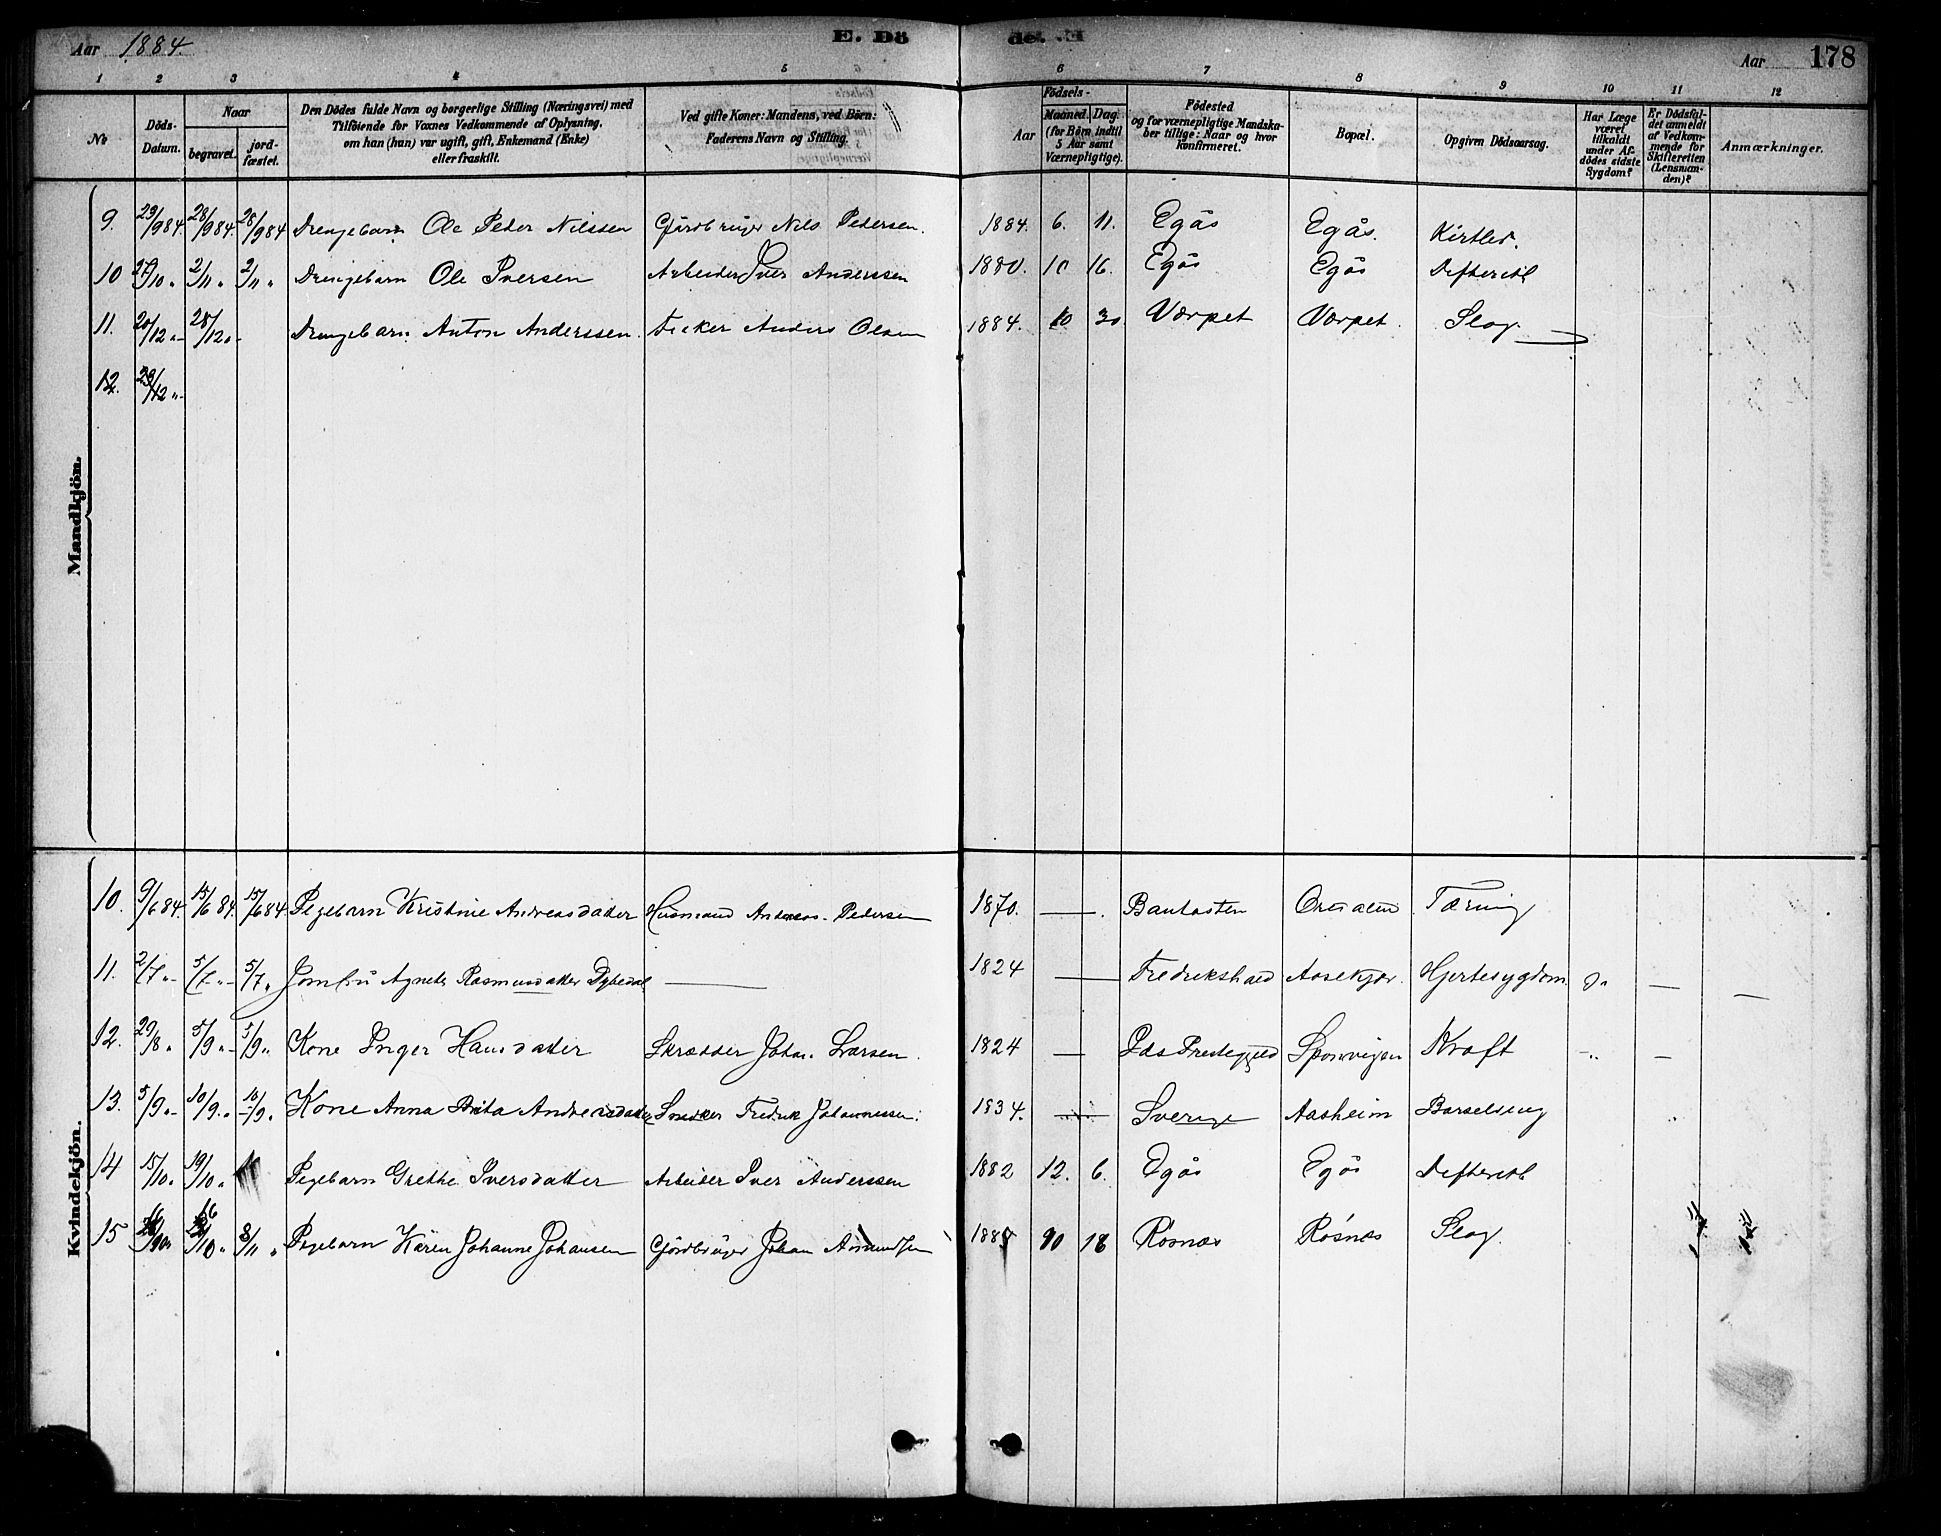 Aar 1884.
E. Dö
de. .E
Aar 178
1 2 3 4 5 6 7 8 9 10 11 12
No
Döds-Datum.
Naar
begravet.
jord-fæstet.
Den Dödes fulde Navn og borgerlige Stilling (Næringsvei) med
Tilföiende for Voxnes Vedkommende af Oplysning.
om han (hun) var ugift, gift, Enkemand (Enke)
eller fraskilt.
Ved gifte Koner: Mandens, ved Börn:
Faderens Navn og Stilling.
Födsels-
Aar
Maaned. Dag.
(for Börn indtil
5 Aar samt
Værnepligtige).
Födested
og for værnepligtige Mandska-
ber tillige: Naar og hvor
konfirmeret.
Bopæl.
Opgiven Dödsaarsag.
Har Læge
været
tilkaldt
under Af-
dödes sidste
Sygdom?
Er Dödsfal-
det anmeldt
af Vedkom-
mende for
Skifteretten
(Lensman-
den)?
Anmærkninger.
Mandkjön.
9. 23/9 84. 28/9 84. 28/9 84 Drengebarn Ole Peder Nilssen Gårdbruger Nils Pedersen. 1884. 6. 11. Egås Egås. Kirtler.
10 27/10 " 2/11 " 2/11 " Drengebarn Ole Iversen Arbeider Iver Anderssen 1880. 10 16. Egås Egås Defteritl
11. 20/12 "- 28/12 "- Drengebarn Anton Anderssen. Anders Olsen 1884. 10 30. Værpet Værpet. Slag.
12. 23/12 "-
Kvindekjön.
10. 9/6 84. 15/6 84. 15/6 84 Pigebarn Kristine Andreasdatter Husmand Andreas Pedersen 1870. — Bautasten Tæring
11. 2/7 "- 5/7 "- 5/7 " Jomfru Agnete Rasmusdatter Dybedal — 1824 — Fredrikshald Hjertesygdom — —
12. 29/8 " 5/9 "- 5/9 " Kone Inger Hansdatter Skrædder Johan Larsen. 1824 — Ids Prestegjeld Sponvigen Kræft -"- —
13. 5/9 "- 10/9 " 10/9 " Kone Anna Brita Andreasdatter Snedker Fredrik Johannessen. 1834. — Sverige Aasheim Barselseng
14 15/10 " 19/10 " Pigebarn Grethe Iversdatter Arbeider Iver Anderssen 1882 12. 6. Egås Egås Defteritl
15 8/11 " Pigebarn Karen Johanne Johansen Gårdbruger Johan 10 18 Røsnæs Røsnæs Slag.